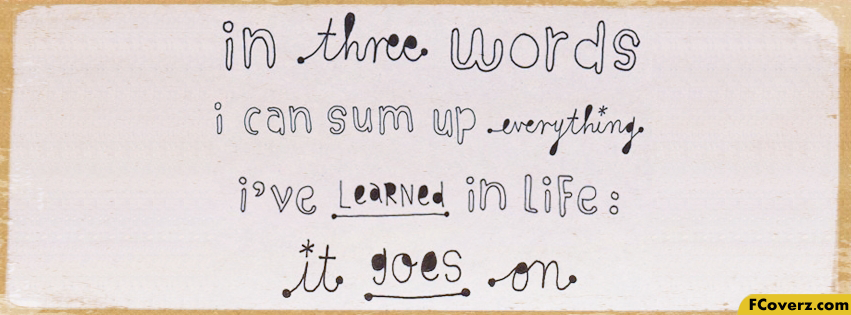 in three words
i can sum up everything
i've LeaRNed in Life:
it goes on
FCoverz.com